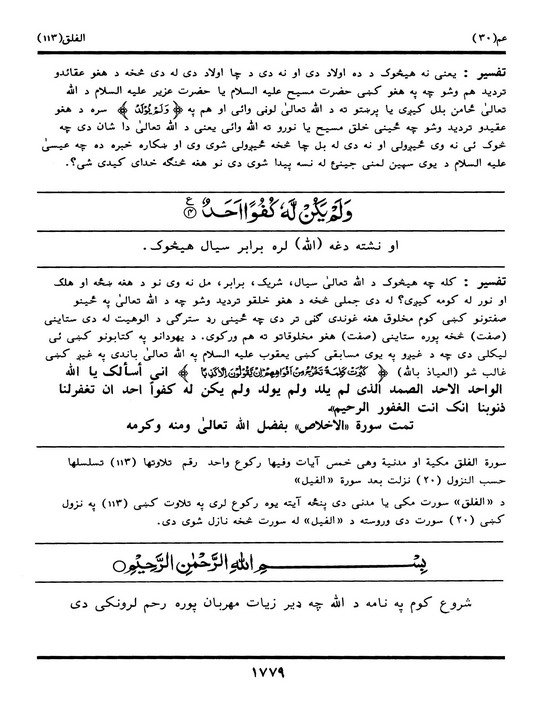 عم(۳۰) الفلق(۱۱۳)
تفسیر : یعنی نه هیڅوک د ده اولاد دی او نه دی د چا اولاد دی له دی څخه د هغو عقائدو
تردید هم وشو چه په هغو کښی حضرت مسیح علیه السلام یا حضرت عزیر علیه السلام د الله
تعالیٰ ځامن بلل کیږی یا پرښتو ته د الله تعالیٰ لونی وائی او هم په ﴿ وَلَمْ يُولَدْ ﴾ سره د هغو
عقیدو تردید وشو چه ځینی خلق مسیح یا نورو ته الله وائی یعنی د الله تعالیٰ دا شان دی چه
څوک ئی نه وی ځیږولی او نه دی له بل چا څخه ځیږولی شوی وی او ښکاره خبره ده چه عیسیٰ
علیه السلام د یوی سپین لمنی جینئ له نسه پیدا شوی دی نو هغه څنګه خدای کیدی شی؟.
وَلَمْ يَكُنْ لَّهٗ كُفُوًا اَحَدٌ
او نشته دغه (الله) لره برابر سیال هیڅوک.
تفسیر : کله چه هیڅوک د الله تعالیٰ سیال، شریک، برابر، مل نه وی نو د هغه ښځه او هلک
او نور له کومه کیږی؟ له دی جملی څخه د هغو خلقو تردید وشو چه د الله تعالیٰ په ځینو
صفتونو کښی کوم مخلوق هغه غوندی ګڼی تر دی چه ځینی رډ سترګی د الوهیت له دی ستاینی
(صفت) څخه پوره ستاینی (صفت) هغو مخلوقاتو ته هم ورکوی. د یهودانو په کتابونو کښی ئی
لیکلی دی چه د غیږو په یوی مسابقی کښی یعقوب علیه السلام په الله تعالیٰ باندی په غیږ کښی
غالب شو (العیاذ بالله) ﴿ كَبُرَتْ كَلِمَةً تَخْرُجُ مِنْ اَفْوَاهِهِمْ اِنْ يَّقُوْلُوْنَ اِلَّا كَذِبًا ﴾ انی أسألک یا الله
الواحد الاحد الصمد الذی لم یلد ولم یولد ولم یکن له کفواً احد ان تغفرلنا
ذنوبنا انک انت الغفور الرحیم»
تمت سورة «الاخلاص» بفضل الله تعالیٰ ومنه وکرمه
سورة الفلق مکیة او مدنیة وهی خمس آیات وفیها رکوع واحد رقم تلاوتها (۱۱۳) تسلسلها
حسب النزول (۲۰) نزلت بعد سورة «الفیل»
د «الفلق» سورت مکی یا مدنی دی پنځه آیته یوه رکوع لری په تلاوت کښی (۱۱۳) په نزول
کښی (۲۰) سورت دی وروسته د «الفیل» له سورت څخه نازل شوی دی.
بِسْمِ اللّٰهِ الرَّحْمٰنِ الرَّحِيْمِ
شروع کوم په نامه د الله چه ډیر زیات مهربان پوره رحم لرونکی دی
۱۷۷۹